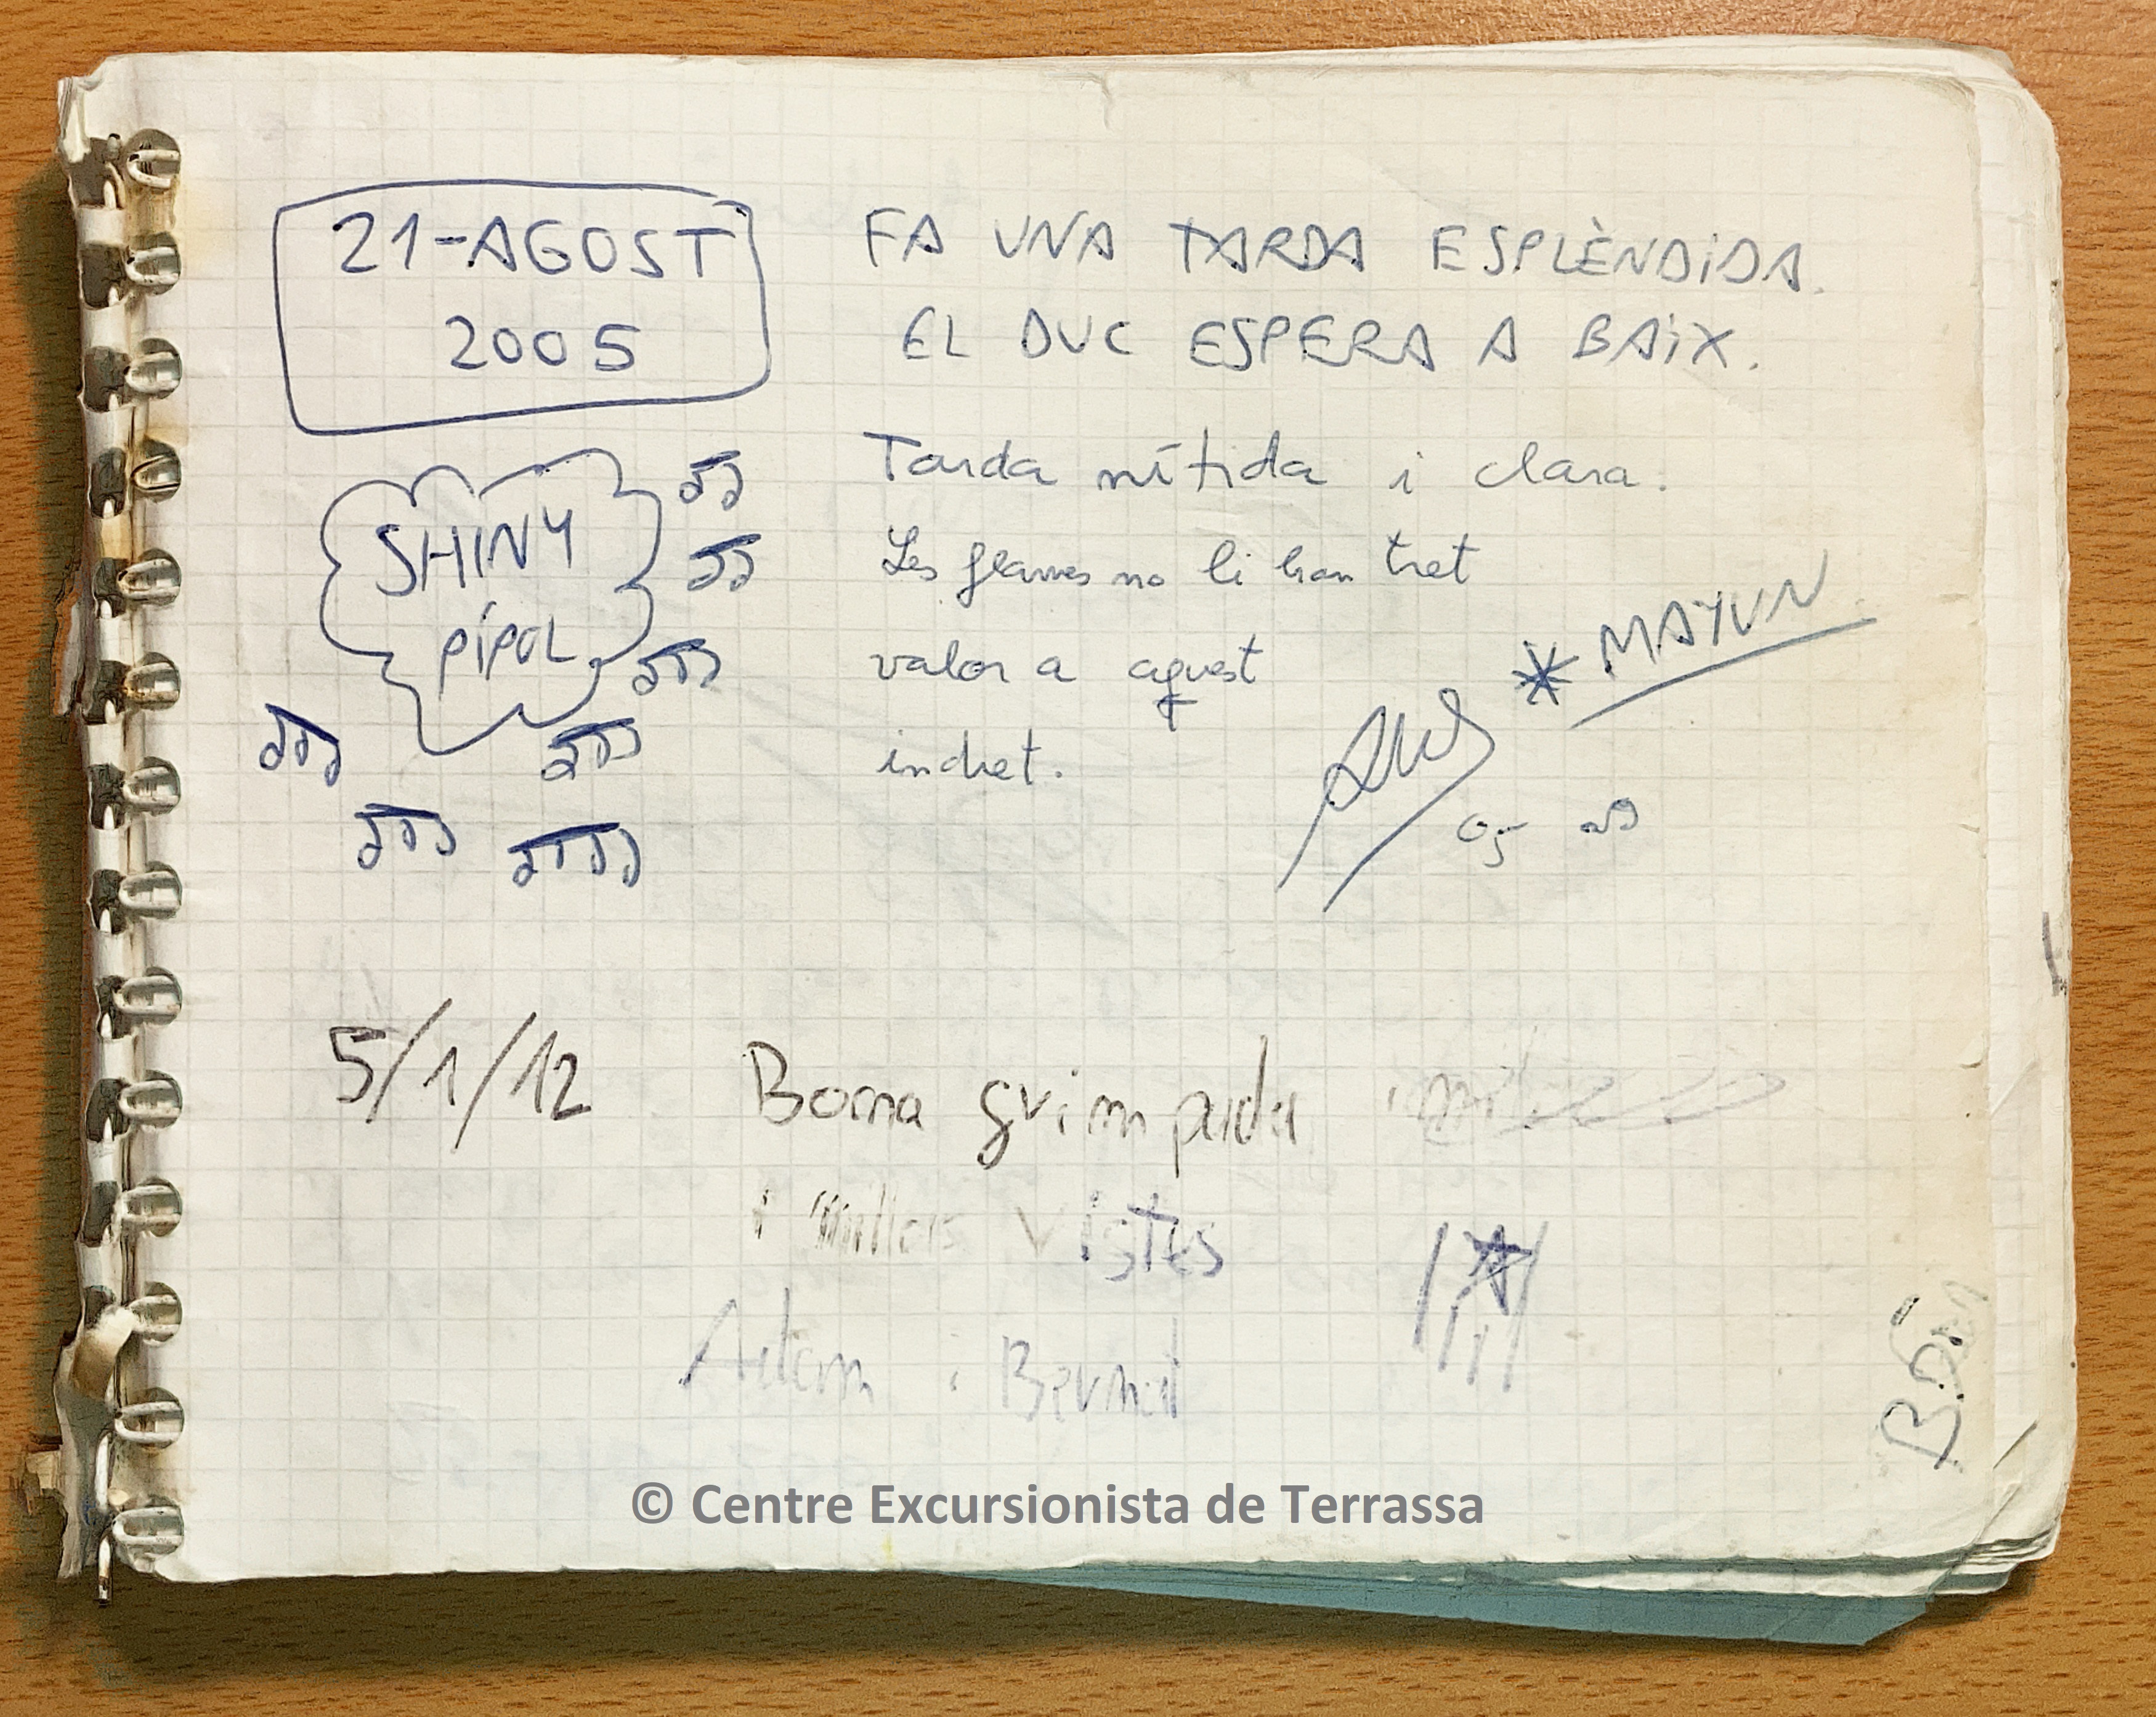 21-AGOST
2005
FA UNA TARDA ESPLÈNDIDA.
EL DUC ESPERA A BAIX.
SHINY
PÍPOL
Tarda nítida i clara.
Les flames no li han tret
valor a aquest
indret.
* MAYUN
05
5/1/12
Bona grimpada
i millors vistes
Adam i Bernat
© Centre Excursionista de Terrassa